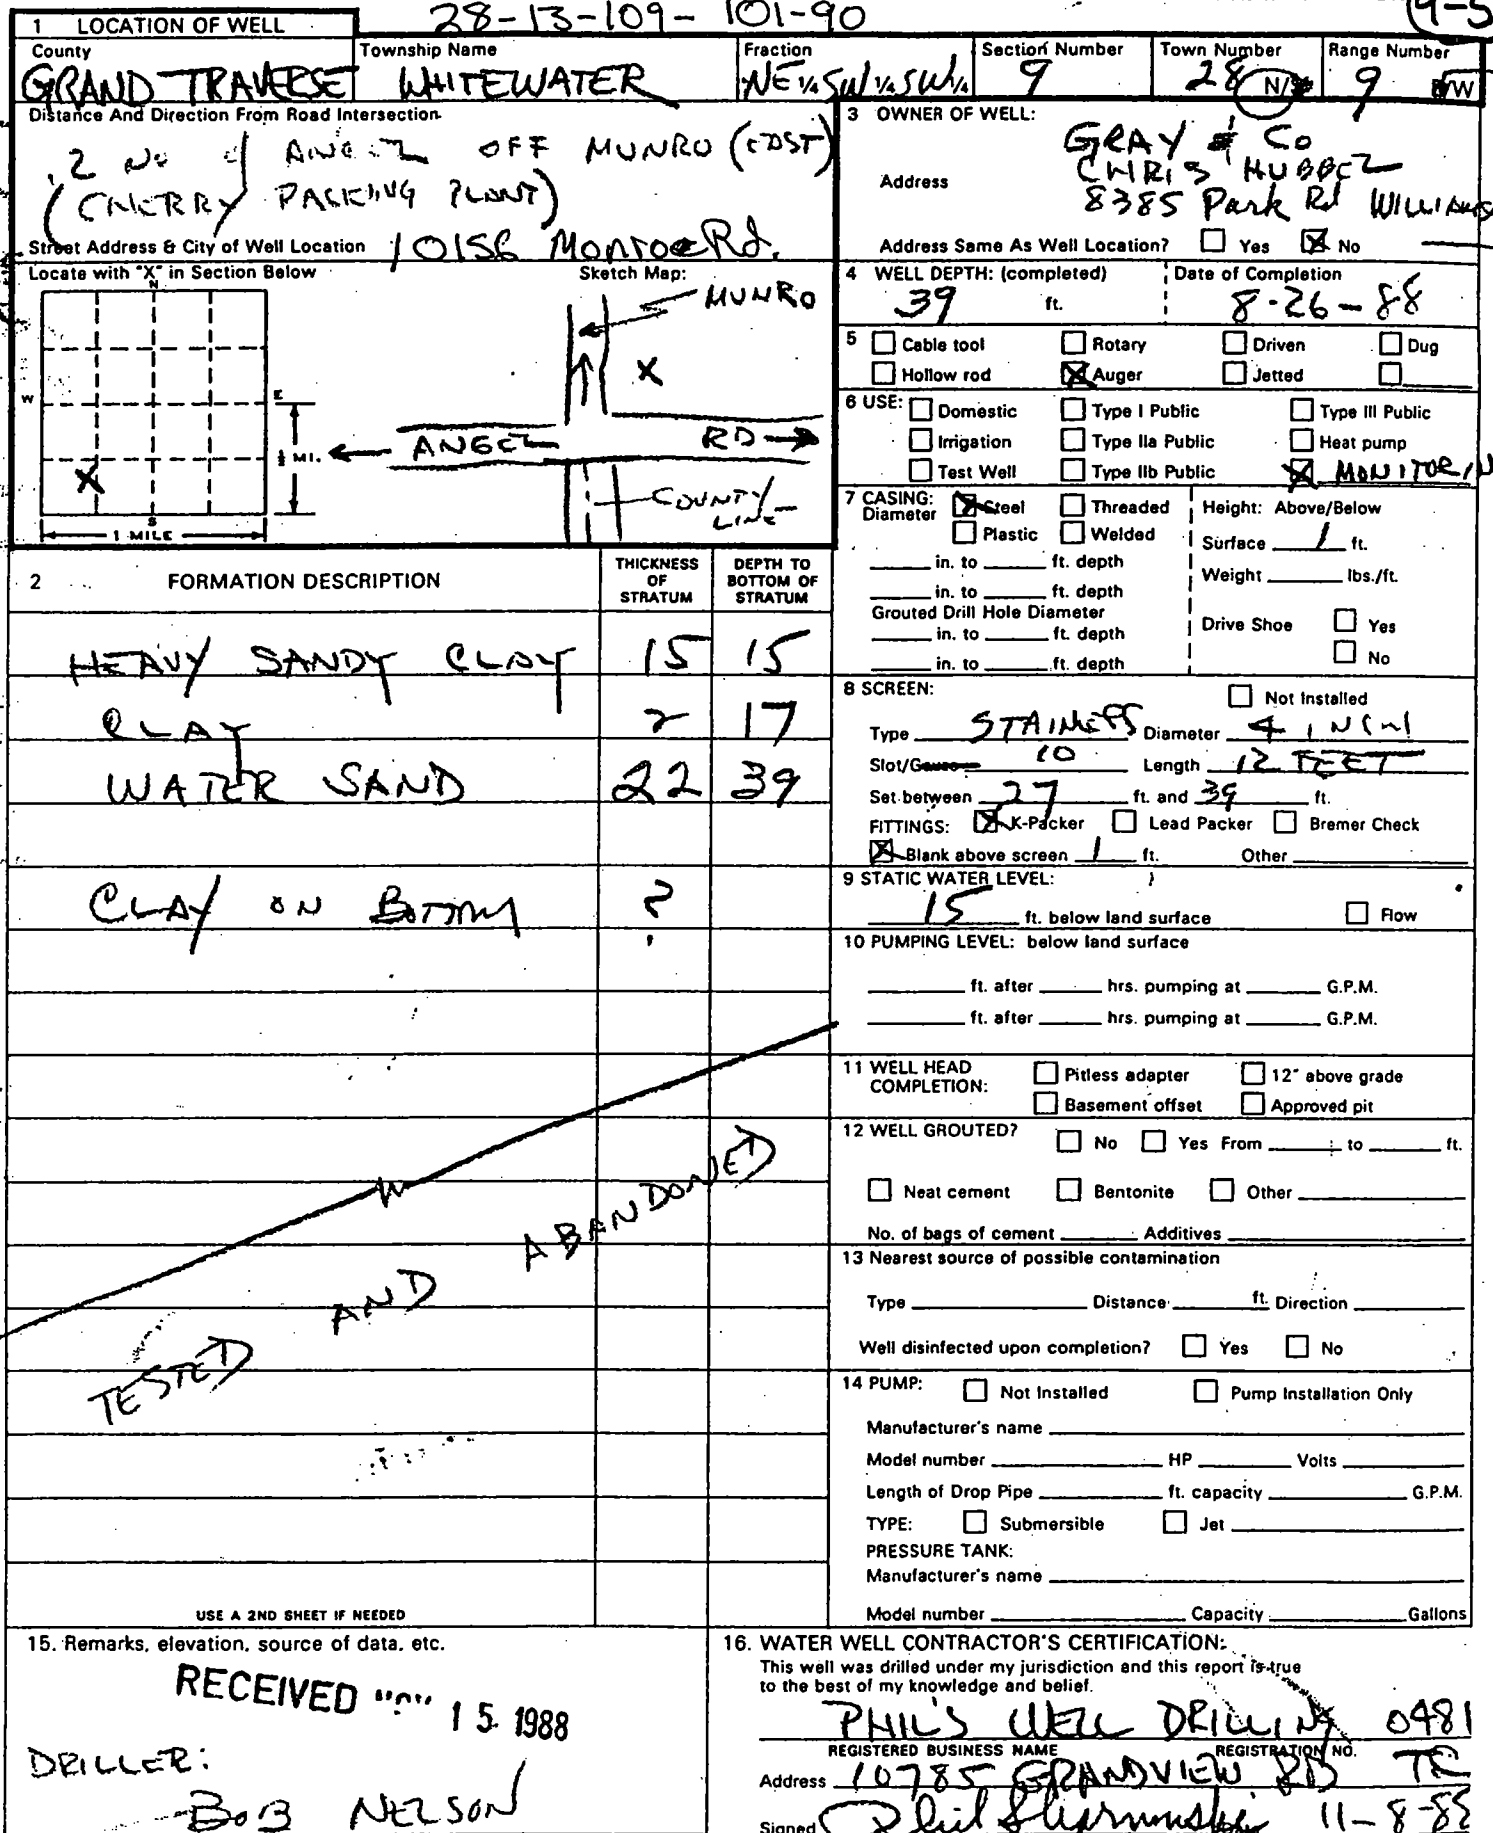 28-13-109-101-90
1 LOCATION OF WELL
County
GRAND TRAVERSE
Township Name
WHITEWATER
Fraction
NE ¼ SW ¼ SW ¼
Section Number
9
Town Number
28 N/
Range Number
9 /W
Distance And Direction From Road Intersection
.2 ANGEL OFF MUNRO (EAST)
(CHERRY PACKING PLANT)
Street Address & City of Well Location 10156 Monroe Rd.
Locate with "X" in Section Below
N
W
E
S
X
½ MI.
1 MILE
Sketch Map:
MUNRO
X
ANGEL RD
COUNTY
LINE
2 FORMATION DESCRIPTION
THICKNESS OF STRATUM
DEPTH TO BOTTOM OF STRATUM
HEAVY SANDY CLAY 15 15
CLAY 2 17
WATER SAND 22 39
CLAY ON BOTTOM ?
TESTED AND ABANDONED
USE A 2ND SHEET IF NEEDED
3 OWNER OF WELL:
GRAY & Co
CHRIS HUBBEL
Address
8385 Park Rd
Address Same As Well Location? Yes No
4 WELL DEPTH: (completed)
39 ft.
Date of Completion
8-26-88
5 Cable tool Rotary Driven Dug
Hollow rod Auger Jetted
6 USE: Domestic Type I Public Type III Public
Irrigation Type IIa Public Heat pump
Test Well Type IIb Public MONITORIN
7 CASING: Steel Threaded
Diameter Plastic Welded
in. to ft. depth
in. to ft. depth
Grouted Drill Hole Diameter
in. to ft. depth
in. to ft. depth
Height: Above/Below
Surface 1 ft.
Weight lbs./ft.
Drive Shoe Yes
No
8 SCREEN: Not Installed
Type STAINLESS Diameter 4 INCH
Slot/Gauze 10 Length 12 FEET
Set between 27 ft. and 39 ft.
FITTINGS: K-Packer Lead Packer Bremer Check
Blank above screen 1 ft. Other
9 STATIC WATER LEVEL:
15 ft. below land surface Flow
10 PUMPING LEVEL: below land surface
ft. after hrs. pumping at G.P.M.
ft. after hrs. pumping at G.P.M.
11 WELL HEAD COMPLETION: Pitless adapter 12" above grade
Basement offset Approved pit
12 WELL GROUTED? No Yes From to ft.
Neat cement Bentonite Other
No. of bags of cement Additives
13 Nearest source of possible contamination
Type Distance ft. Direction
Well disinfected upon completion? Yes No
14 PUMP: Not Installed Pump Installation Only
Manufacturer's name
Model number HP Volts
Length of Drop Pipe ft. capacity G.P.M.
TYPE: Submersible Jet
PRESSURE TANK:
Manufacturer's name
Model number Capacity Gallons
15. Remarks, elevation, source of data, etc.
RECEIVED 15 1988
DRILLER:
BOB NELSON
16. WATER WELL CONTRACTOR'S CERTIFICATION:
This well was drilled under my jurisdiction and this report is true
to the best of my knowledge and belief.
PHIL'S WELL DRILLING 0481
REGISTERED BUSINESS NAME REGISTRATION NO.
Address 10785 GRANDVIEW RD TC
Signed Phil 11-8-88